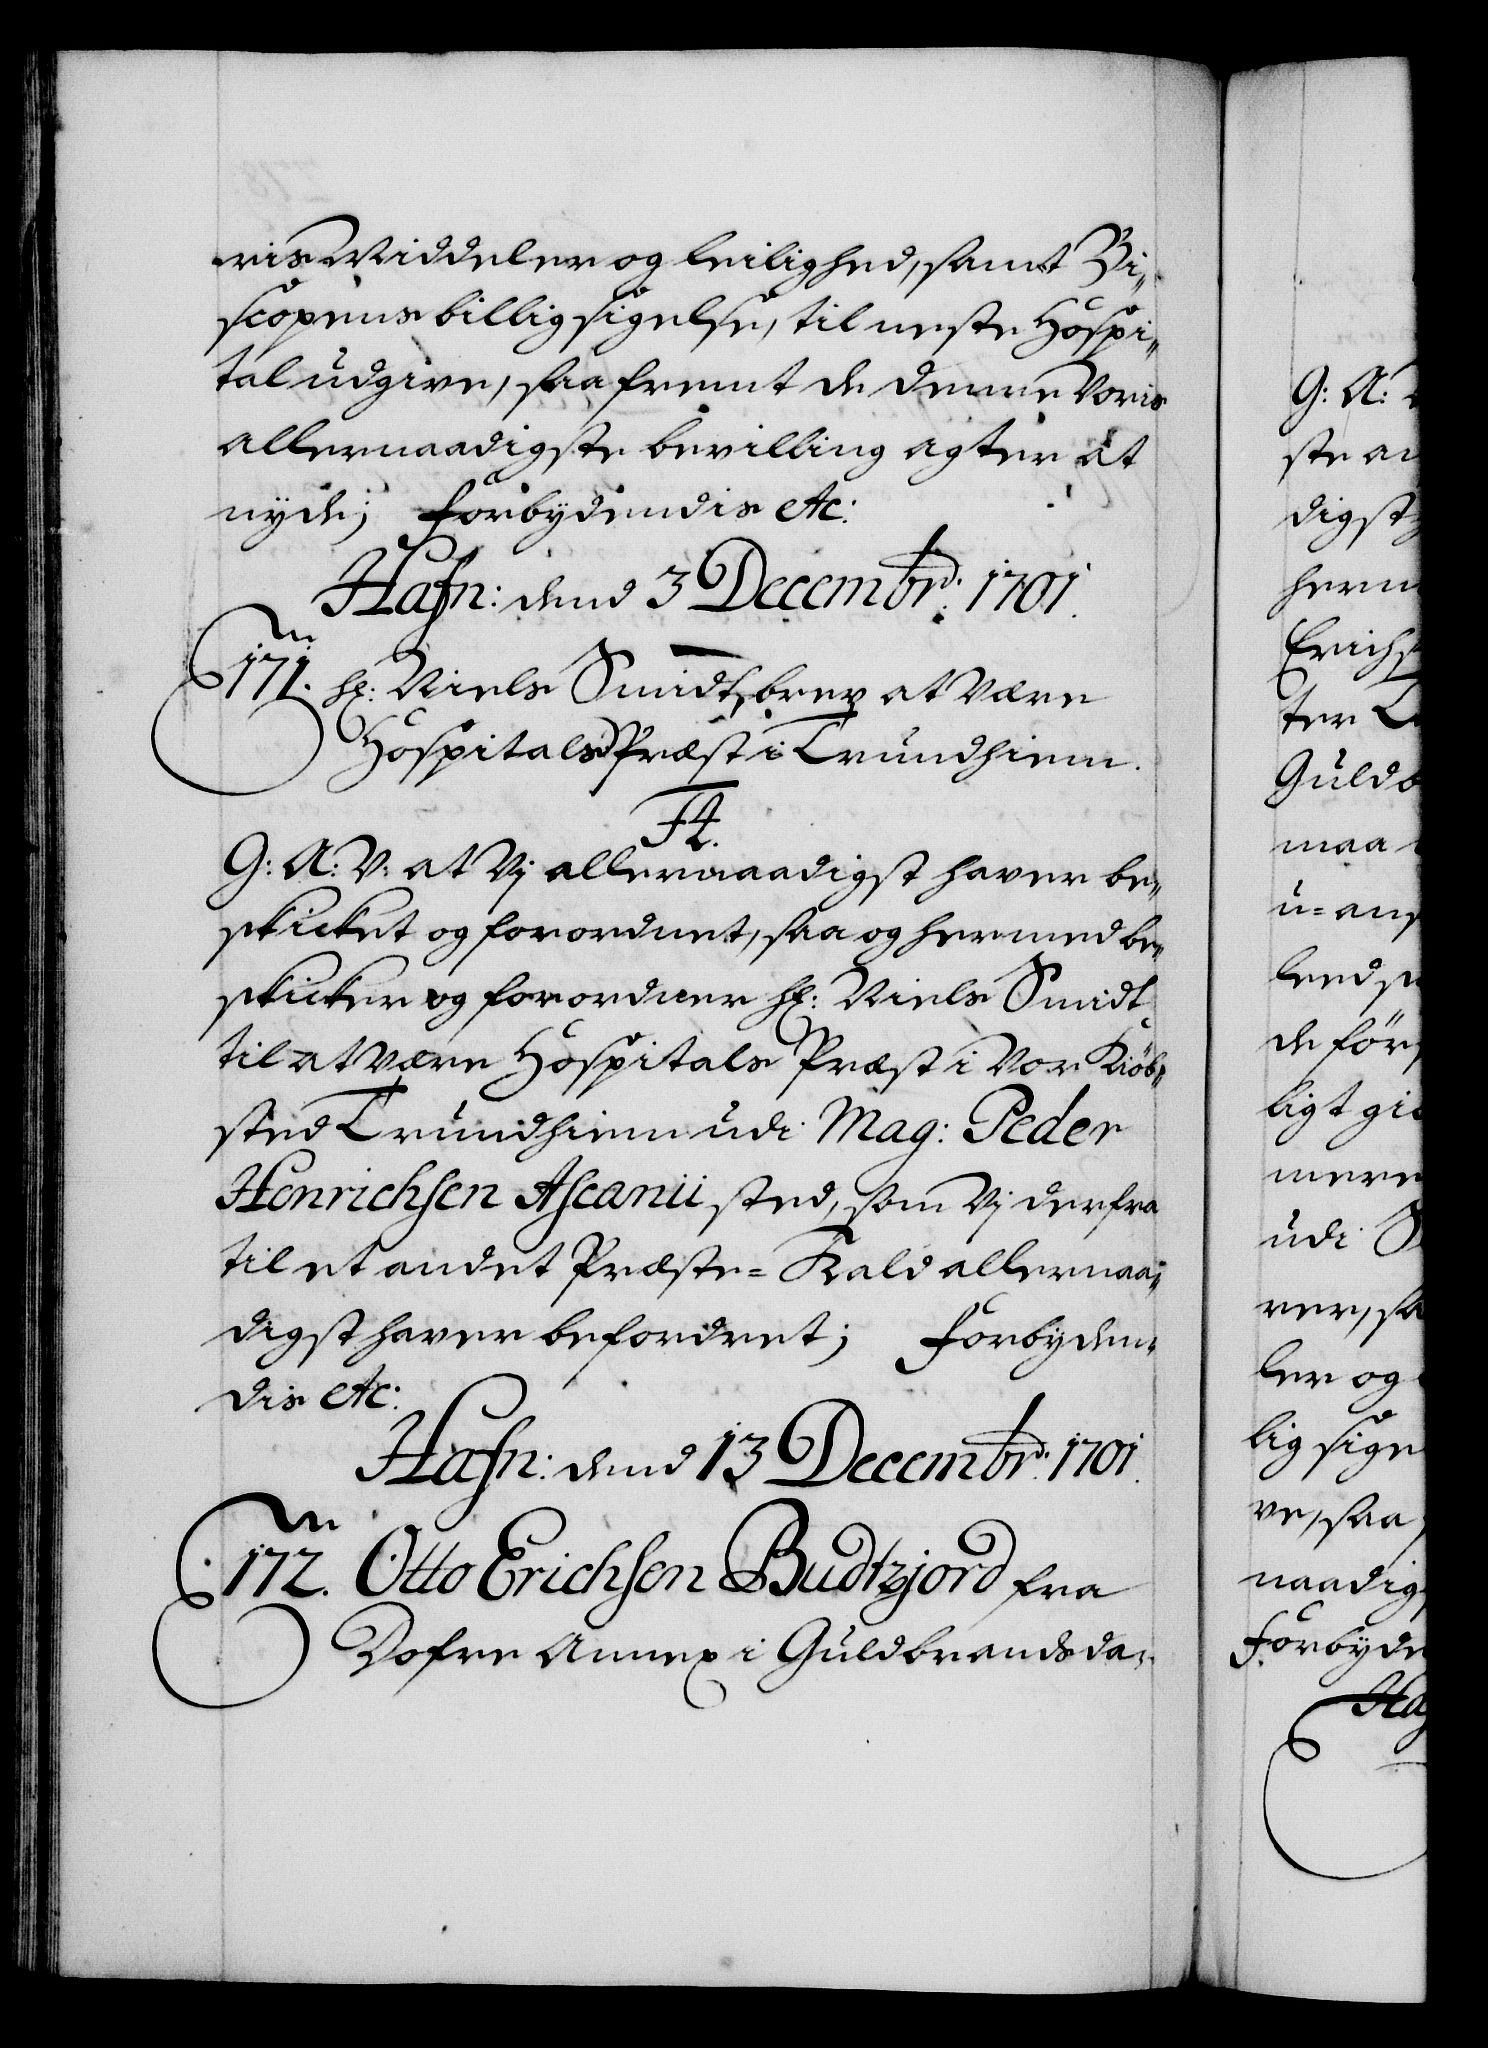 ris Middeler og leilighed, samt Bi„
scopens billig sigelse, til neste Hospi„
tal udgive, saa fremt de denne Voris
allernaadigste bevilling agter at
nyde; Forbydendis etc:
Hafn: dend 3 Decembr: 1701.
171. Hr: Niels Smidt, brev at være
Hospitals Præst i Trundhiem.
F4.
G: A: V: at Vj allernaadigst haver be„
skicket og forordnet, saa og hermed be„
skicker og forordner Hr: Niels Smidt
til at være Hospitals Præst i Vor Kiøb„
sted Trundhiem udi Mag: Peder
Henrichsen Ascanii sted, som Vj derfra
til et andet Præste= Kald allernaa„
digst haver befordret; Forbyden„
dis etc:
Hafn: dend 13 Decembr: 1701.
172. Otto Erichsen Budtzjord fra
Dofre Annex i Guldbrandsda„
G: A:
ste an
digst
herm
Erichs
ter
Guldb
maa
u=ans
leeds
de før
ligt gi
mere
udi S
rer, sa
ler og
lig sige
ve, saa
naadig
Forbyde
Haf